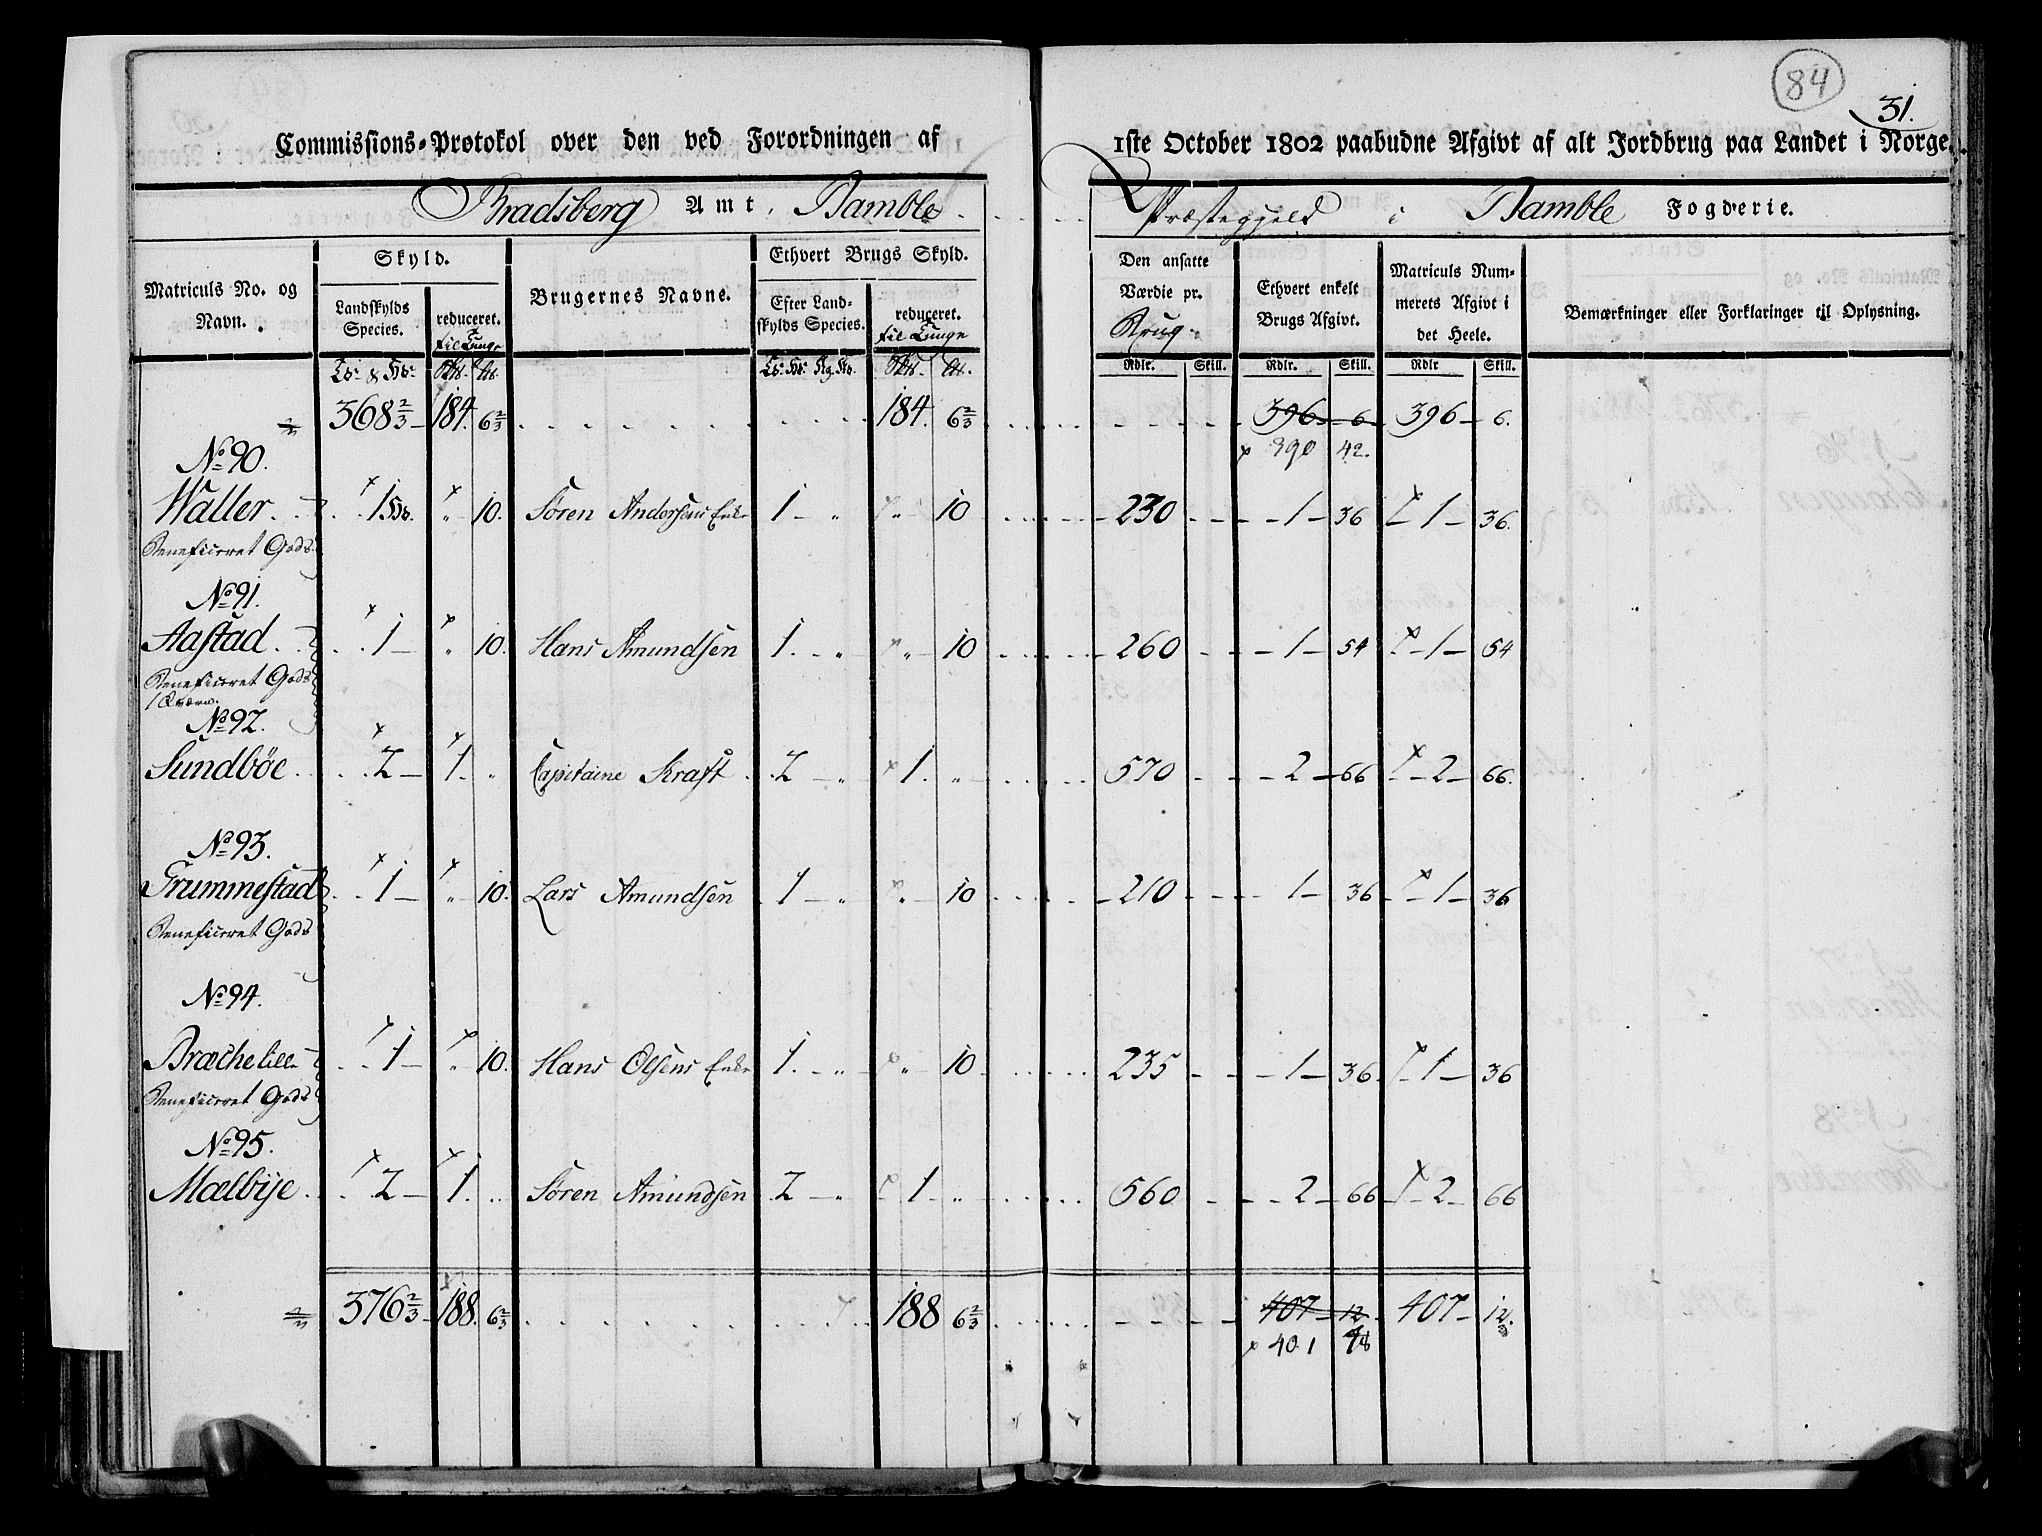 84
31.
Commissions-Protokol over den ved Forordningen af 1ste October 1802 paabudne Afgivt af alt Jordbrug paa Landet i Norge.
Bradsberg Amt, Bamble Præstegjeld i Bamble Fogderie.
Matriculs No. og Navn. Skyld. Landskylds Species. reduceret. til Tunge Brugernes Navne. Ethvert Brugs Skyld. Efter Landskylds Species. reduceret. til Tunge Den ansatte Værdie pr. Brug Ethvert enkelt Brugs Afgivt. Matriculs Nummerets Afgivt i det Heele. Bemærkninger eller Forklaringer til Oplysning.
Rdlr. Skill. Rdlr. Skill. Rdlr Skill.
368 2/3 184. 6 2/3 184. 6 2/3 396 6 396 6.
x 390 42.
No 90.
Waller 1 Hb. " 10. Søren Andersens Enke 1 " " 10 230 1 36 1 36.
Beneficeret Gods
No 91.
Aastad 1 " 10. Hans Amundsen 1. " " 10 260 1 54 1 54
Beneficeret Gods
1 Qværn.
No 92.
Sundbøe 2 1. " Capitaine Kraft 2 " 1. " 570 2 66 2 66.
No 93.
Trummestad 1 " 10. Lars Amundsen 1 " " 10 210 1 36 1 36
Beneficeret Gods
No 94.
Bræchelille 1 " 10. Hans Olsens Enke 1. " " 10 235 1 36 1 36
Beneficeret Gods
No 95.
Mælbye 2 1. " Søren Amundsen 2 " 1 " 560 2 66 2 66
376 2/3 188. 6 2/3 188 6 2/3 407 12 407 12.
x 401 48